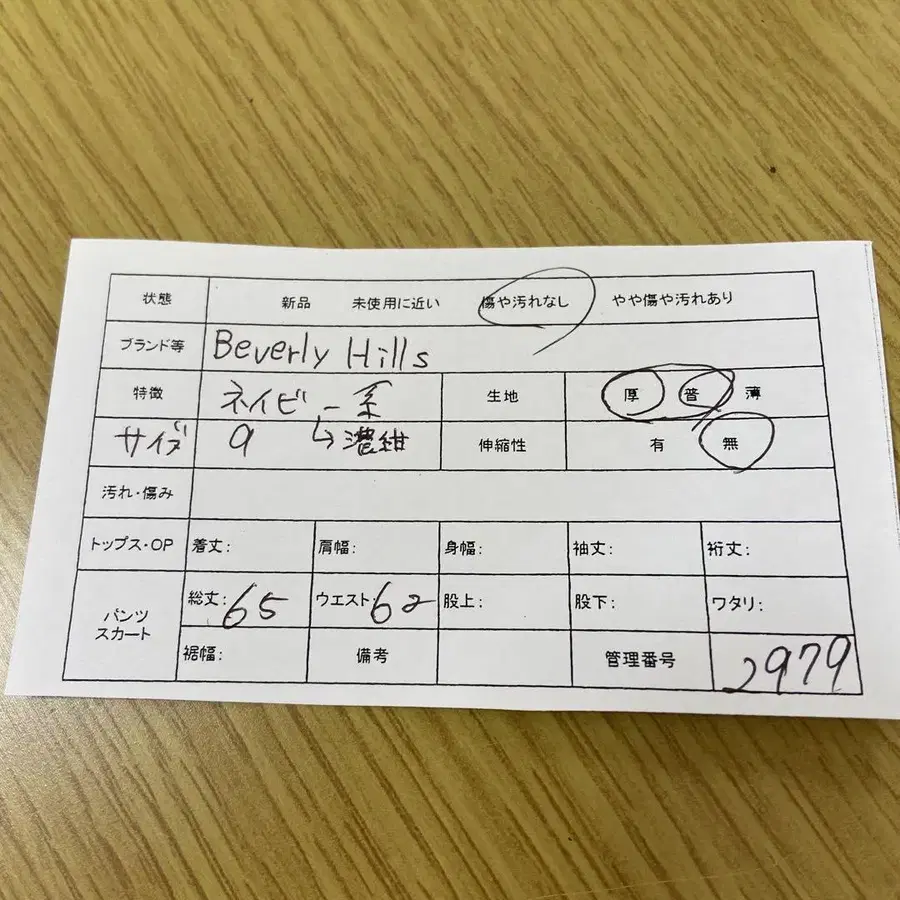 状態 新品 未使用に近い 傷や汚れなし やや傷や汚れあり
ブランド等 Beverly Hills
特徴 ネイビー系 生地 厚 普 薄
サイズ 9 →濃紺 伸縮性 有 無
汚れ・傷み
トップス・OP 着丈: 肩幅: 身幅: 袖丈: 裄丈:
パンツ スカート 総丈:65 ウエスト:62 股上: 股下: ワタリ:
裾幅: 備考 管理番号 2979